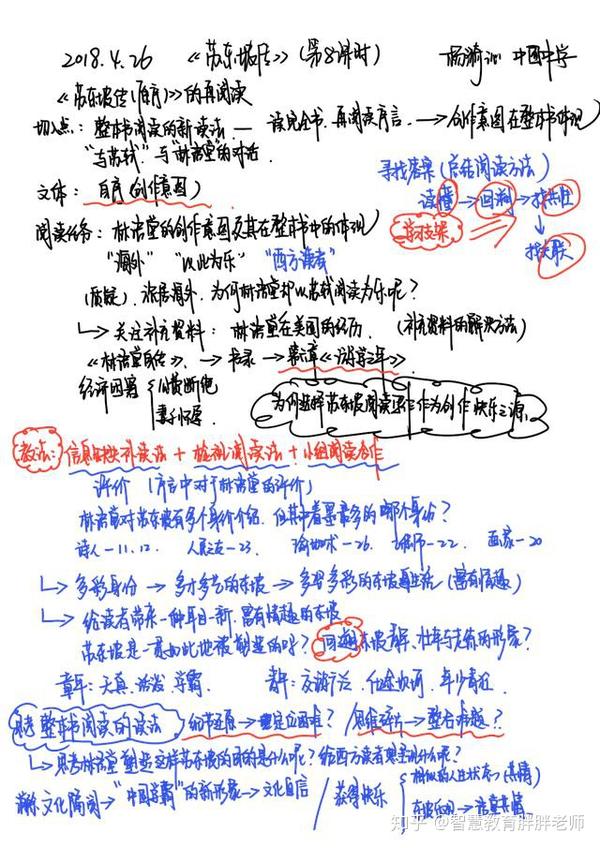 2018.4.26 《苏东坡传》(第8课时)
《苏东坡传(自序)》的再阅读
切入点：整本书阅读的新读法 — 读完全书，再阅读序言。→创作意图在整本书体现
"与苏轼"与"林语堂"的对话
寻找答案(总结阅读方法)
读懂→回溯→找共性
↓
找关联
学习支架
文体：自序(创作意图)
阅读任务：林语堂的创作意图及其在整本书中的体现
"海外" "以此为乐" "西方读者"
(质疑)．旅居海外，为何林语堂却以苏轼阅读为乐呢？
↳关注补充资料：林语堂在美国的经历．(补充资料的解决方法)
《林语堂自传》．→目录→第六章《游学之年》．
经济困窘
妻子怀孕．
为何选择苏东坡阅读作为创作快乐之源．
教法：信息比对补读法+检视阅读法+小组阅读合作
评价 (序言中对于林语堂的评价)
林语堂对苏东坡有多个身份介绍．但其中着墨最多的哪个身份？
诗人—11.12． 人民之友—23． 瑜伽术—26． 22． 画家—20
↳多彩身份→多才多艺的东坡→多姿多彩的东坡生活 (富有情趣)
↳给读者带来一种耳目一新，富有情趣的东坡
苏东坡是一意如此地被塑造的吗？回溯东坡童年、壮年与老年的形象？
童年：天真．活泼．学霸． 青年：交游广泛．仕途坎坷．年少有在．
思考整本书阅读的读法．细节还原→定位困难？/思维碎片→整合难题．？
↳思考林语堂塑造这样苏东坡的目的是什么呢？给西方读者展现什么呢？
文化隔阂→"中国学霸"的新形象→文化自信 / 获得快乐
相似的人生状态(共情)
东坡乐观→语堂共情．
知乎 @智慧教育胖胖老师